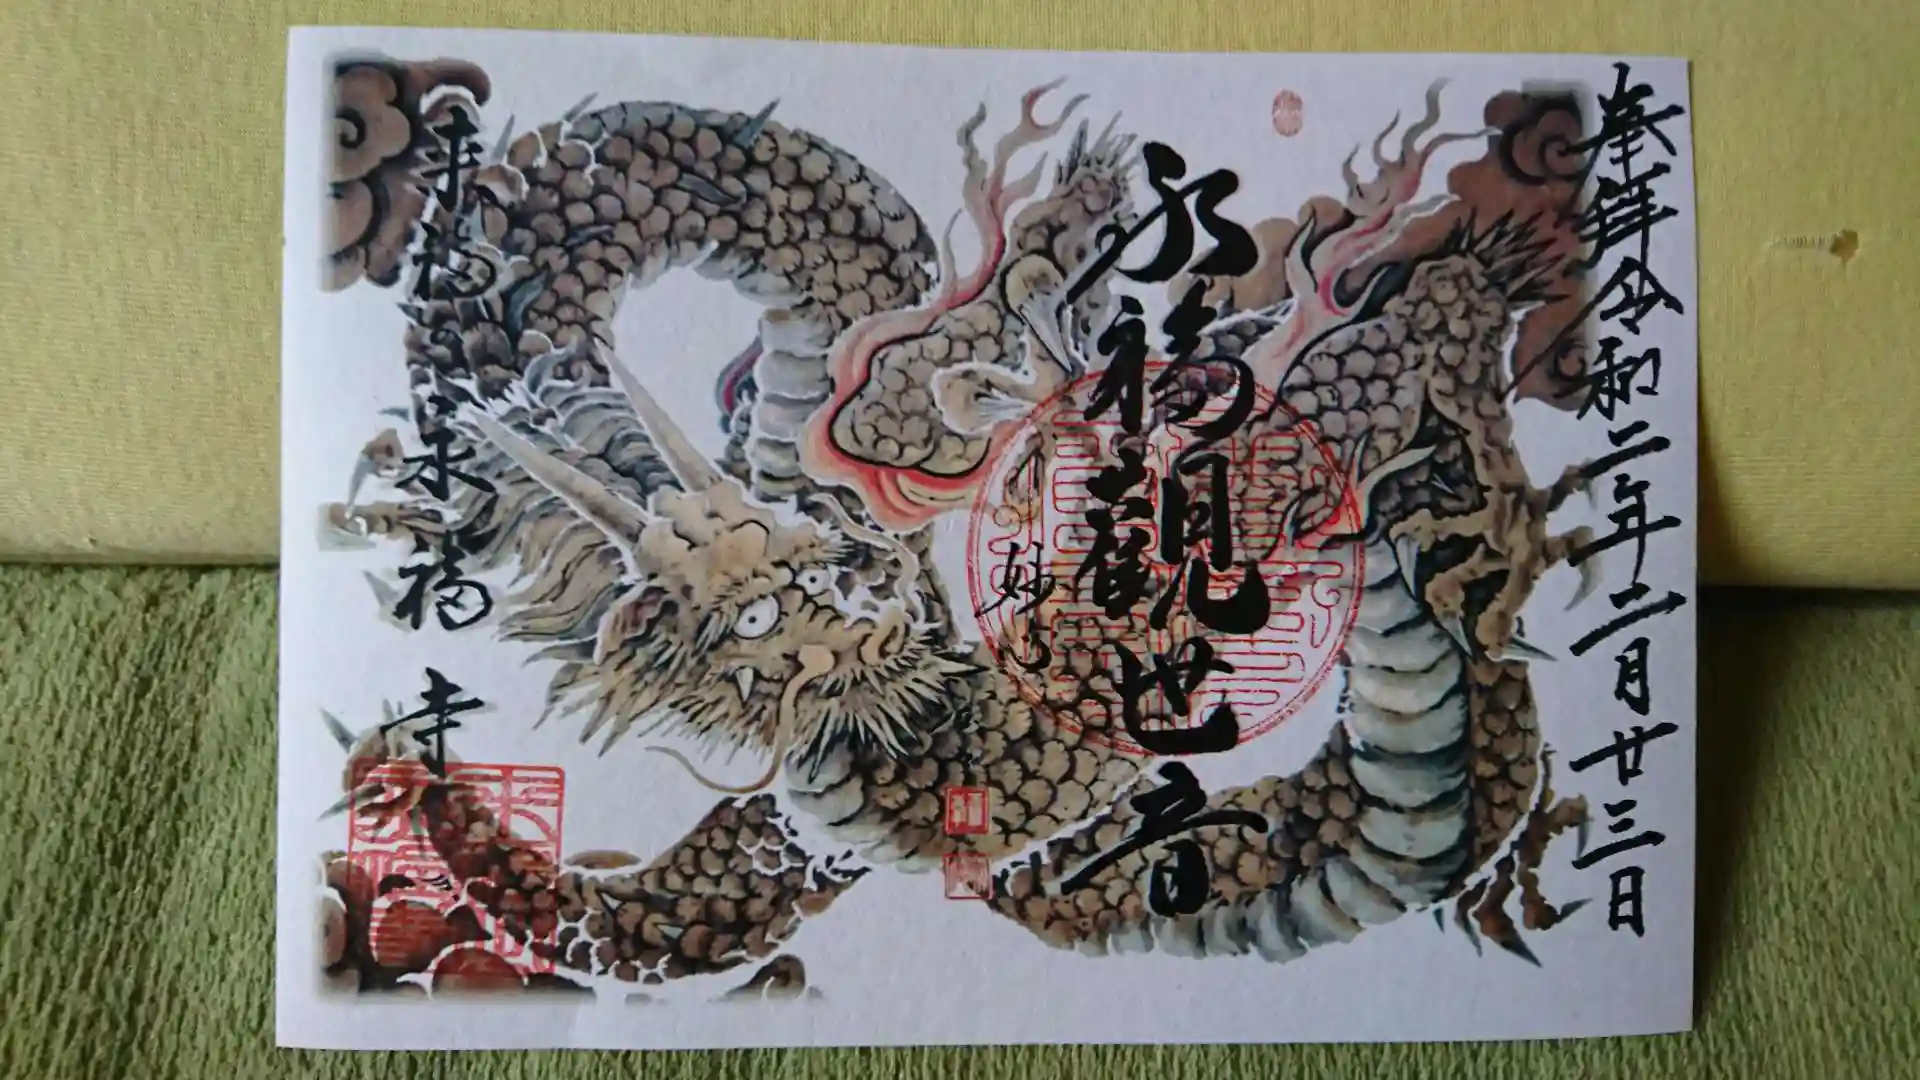 奉拜 令和二年二月廿三日
永福觀世音
妙心
来福 永福寺